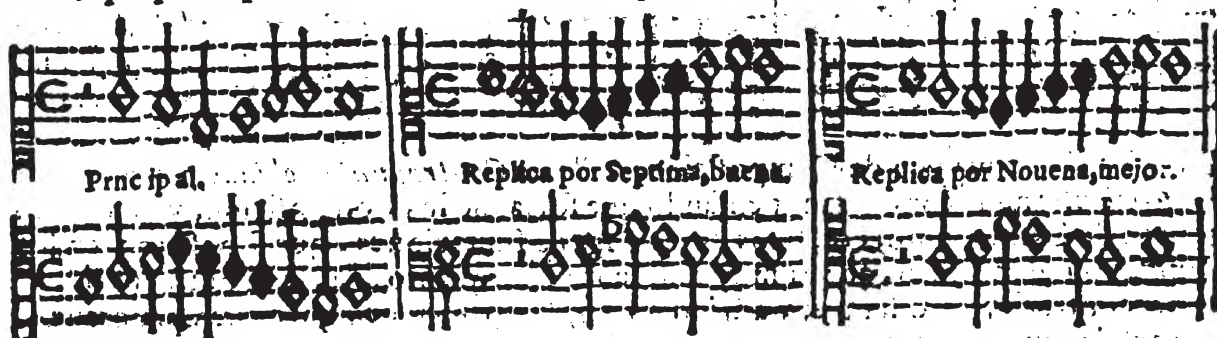 Prncipal. Replica por Septima, buena. Replica por Nouena, mejor.